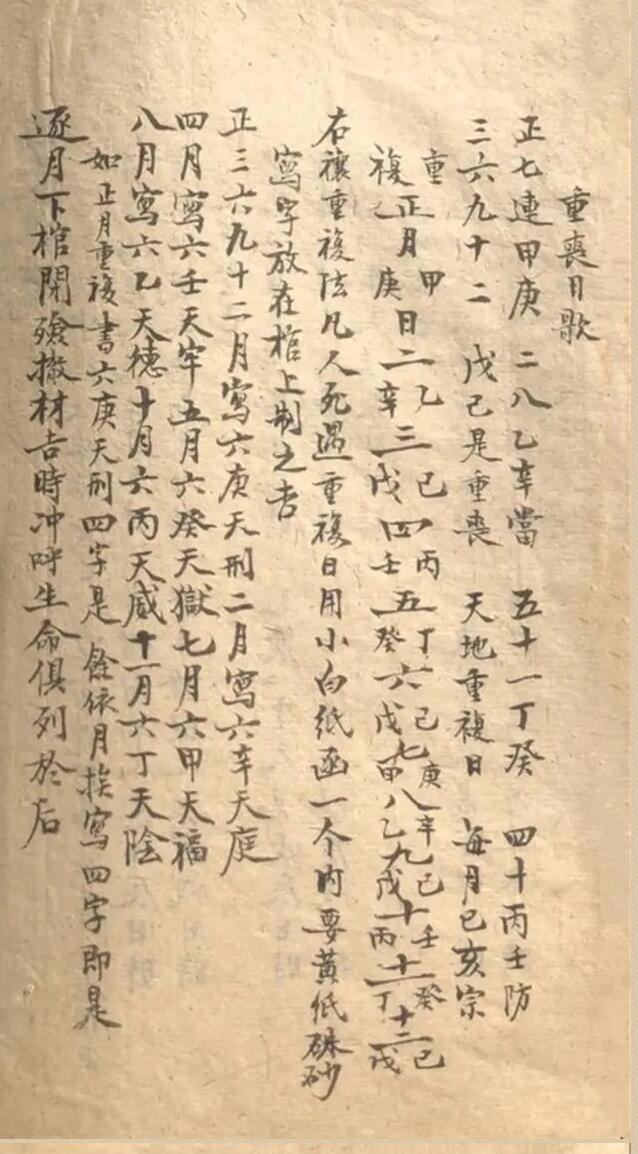 重喪日歌
正七連甲庚 二八乙辛當 五十一丁癸 四十丙壬防
三六九十二 戊己是重喪 天地重複日 每月巳亥宗
重複 正月甲庚日二乙辛三己戊四丙壬五丁癸六己戊七庚甲八辛乙九己戊十壬丙十一癸丁十二己戊
右禳重複法凡人死遇重複日用小白紙函一个内要黄紙硃砂
寫字放在棺上制之吉
正三六九十二月寫六庚天刑二月寫六辛天庭
四月寫六壬天牢五月六癸天獄七月六甲天福
八月寫六乙天德十月六丙天威十一月六丁天陰
如正月重複書六庚天刑四字是 餘依月挨寫四字即是
逐月下棺閉殮撤材吉時冲呼生命俱列於后